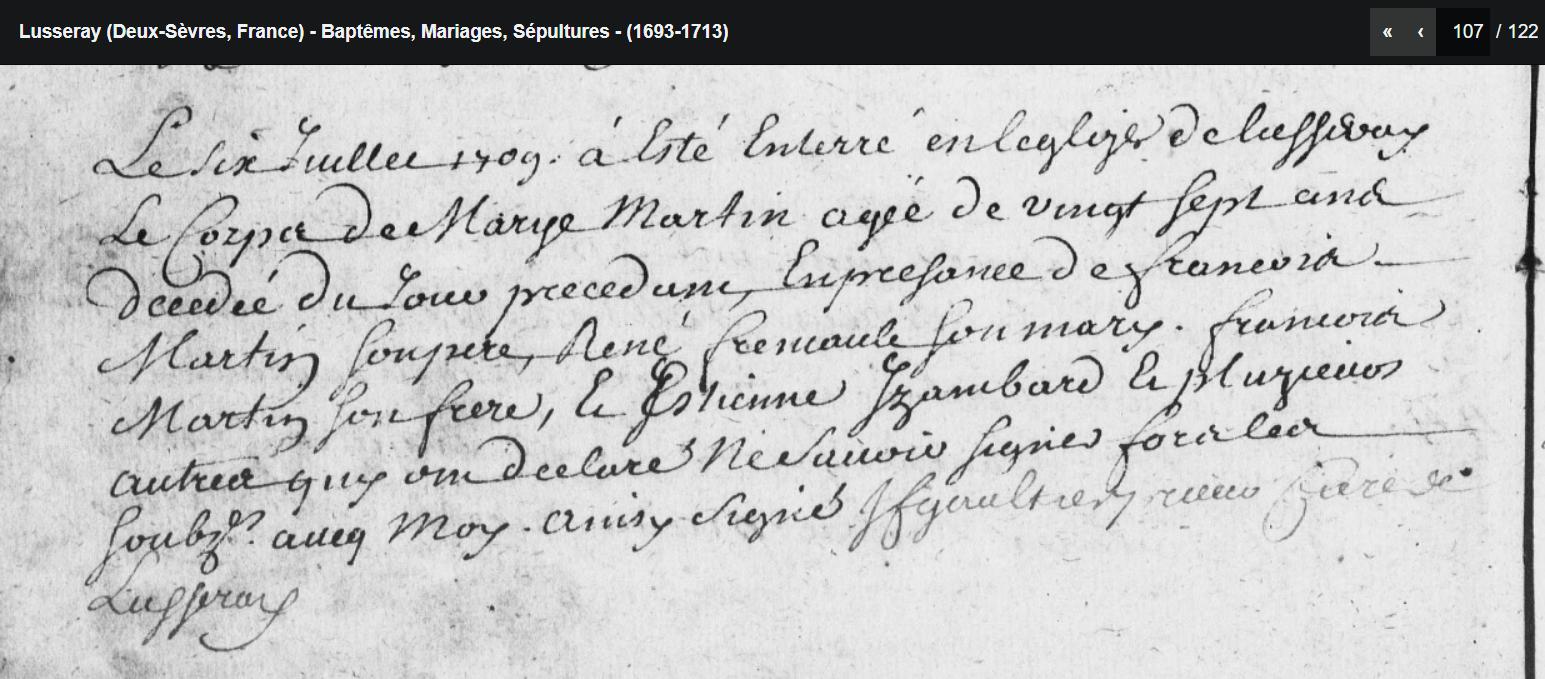 Lusseray (Deux-Sèvres, France) - Baptêmes, Mariages, Sépultures - (1693-1713)
« ‹ 107 / 122
Le six Juillet 1709. á Esté Enterré en leglize de lusseray
Le Corps de Marye Martin agéé de vingt sept ans
decedéé du Jour precedant, En presance de francois
Martin son pere, René fremault son mary. francois
Martin son frere, Et Estienne Izambard Et pluzieurs
autres quy ont declaré Ne savoir signer fors les
soubz.nés avecq Moy. ainsy signé gaultier curé de
Lusseray